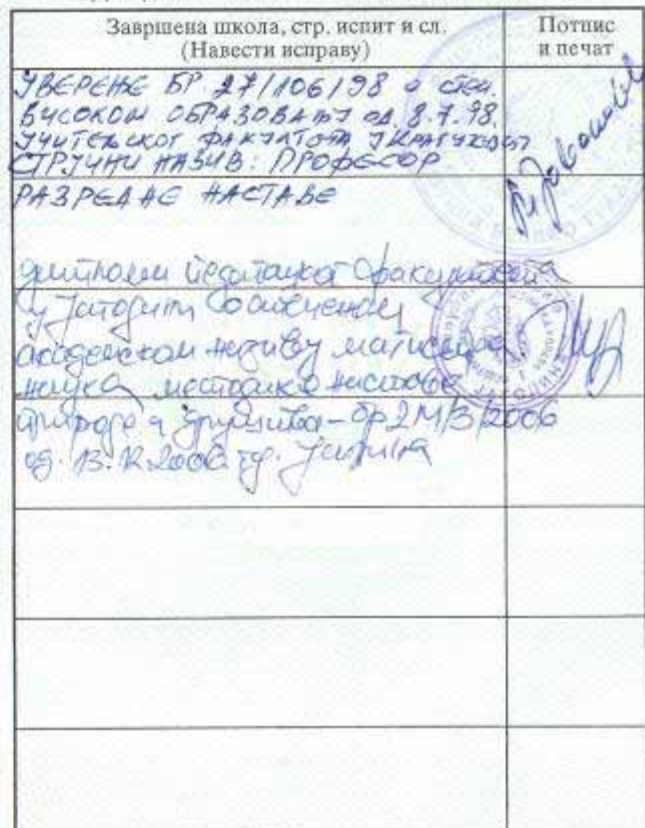 Завршена школа, стр. испит и сл.
(Навести исправу)
Потпис
и печат
УВЕРЕЊЕ БР. 27/106/98 о стеч.
ВИСОКОМ ОБРАЗОВАЊУ од 8.7.98.
УЧИТЕЉСКОГ ФАКУЛТЕТА У
СТРУЧНИ НАЗИВ: ПРОФЕСОР
РАЗРЕДНЕ НАСТАВЕ
факултета
у Јагодини о стеченом
академском називу магистра
наука методике наставе
природе и друштва - бр 2М/3/2006
од. 13.12.2006. год.